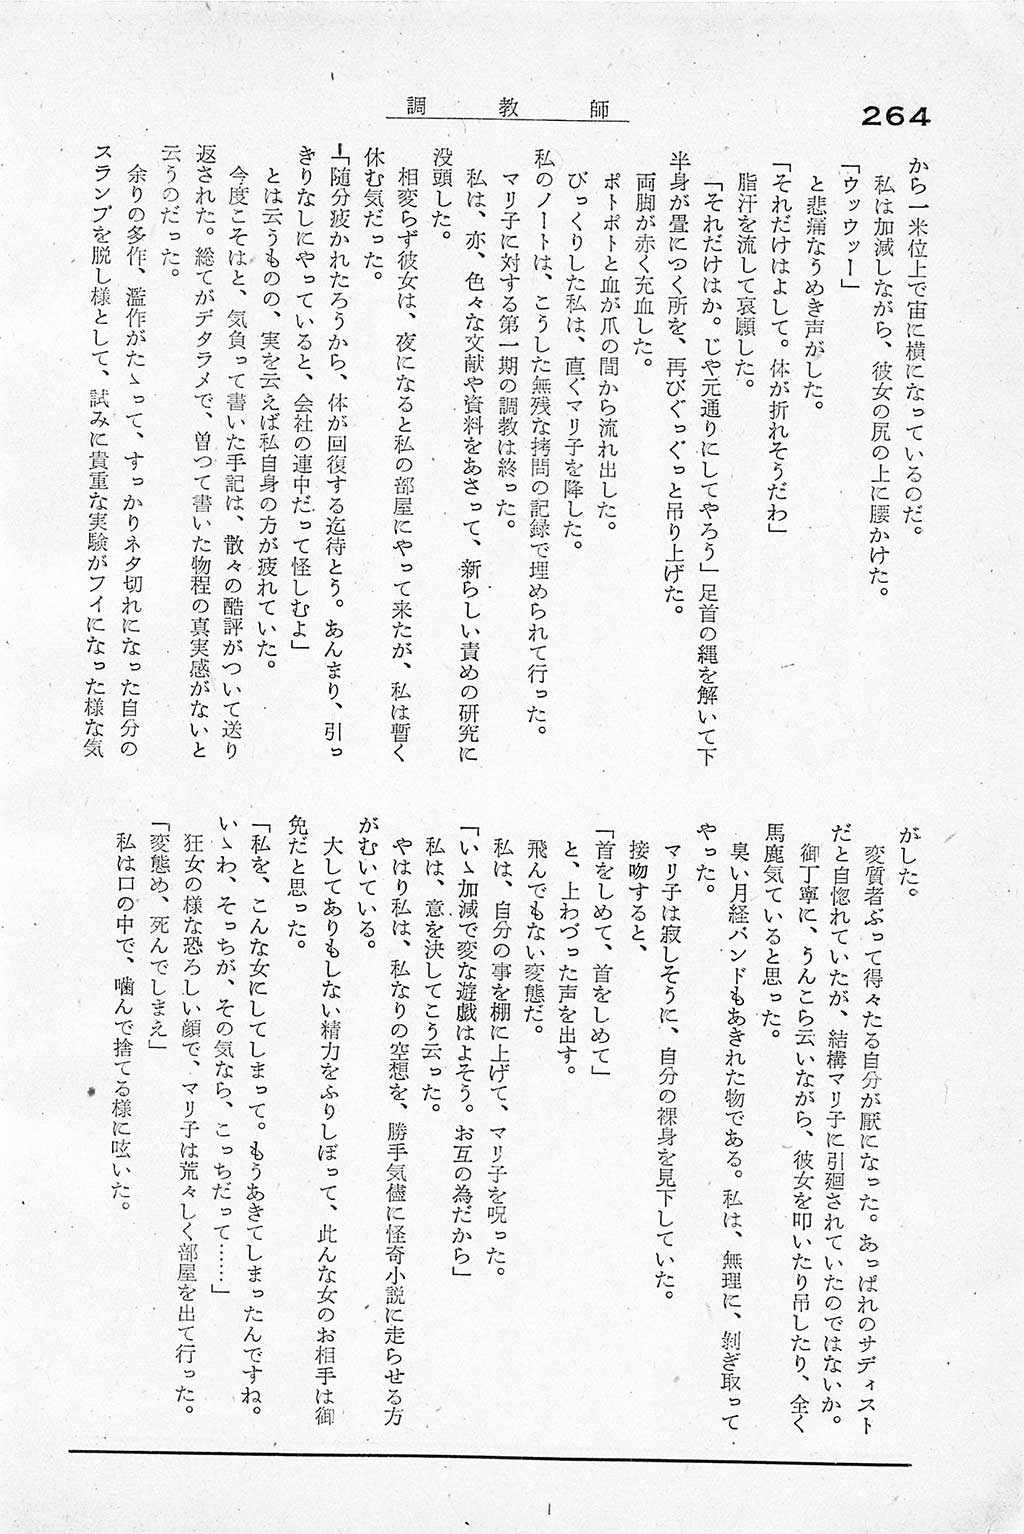 調教師
264
から一米位上で宙に横になっているのだ。
私は加減しながら、彼女の尻の上に腰かけた。
「ウッウッー」
と悲痛なうめき声がした。
「それだけはよして。体が折れそうだわ」
脂汗を流して哀願した。
「それだけはか。じや元通りにしてやろう」足首の縄を解いて下
半身が畳につく所を、再びぐっぐっと吊り上げた。
両脚が赤く充血した。
ポトポトと血が爪の間から流れ出した。
びっくりした私は、直ぐマリ子を降した。
私のノートは、こうした無残な拷問の記録で埋められて行った。
マリ子に対する第一期の調教は終った。
私は、亦、色々な文献や資料をあさって、新らしい責めの研究に
没頭した。
相変らず彼女は、夜になると私の部屋にやって来たが、私は暫く
休む気だった。
「随分疲かれたろうから、体が回復する迄待とう。あんまり、引っ
きりなしにやっていると、会社の連中だって怪しむよ」
とは云うものの、実を云えば私自身の方が疲れていた。
今度こそはと、気負って書いた手記は、散々の酷評がついて送り
返された。総てがデタラメで、曽つて書いた物程の真実感がないと
云うのだった。
余りの多作、濫作がたゝって、すっかりネタ切れになった自分の
スランプを脱し様として、試みに貴重な実験がフイになった様な気
がした。
変質者ぶって得々たる自分が厭になった。あっぱれのサディスト
だと自惚れていたが、結構マリ子に引廻されていたのではないか。
御丁寧に、うんこら云いながら、彼女を叩いたり吊したり、全く
馬鹿気ていると思った。
臭い月経バンドもあきれた物である。私は、無理に、剥ぎ取って
やった。
マリ子は寂しそうに、自分の裸身を見下していた。
接吻すると、
「首をしめて、首をしめて」
と、上わづった声を出す。
飛んでもない変態だ。
私は、自分の事を棚に上げて、マリ子を呪った。
「いゝ加減で変な遊戯はよそう。お互の為だから」
私は、意を決してこう云った。
やはり私は、私なりの空想を、勝手気儘に怪奇小説に走らせる方
がむいている。
大してありもしない精力をふりしぼって、此んな女のお相手は御
免だと思った。
「私を、こんな女にしてしまって。もうあきてしまったんですね。
いゝわ、そっちが、その気なら、こっちだって……」
狂女の様な恐ろしい顔で、マリ子は荒々しく部屋を出て行った。
「変態め、死んでしまえ」
私は口の中で、噛んで捨てる様に呟いた。